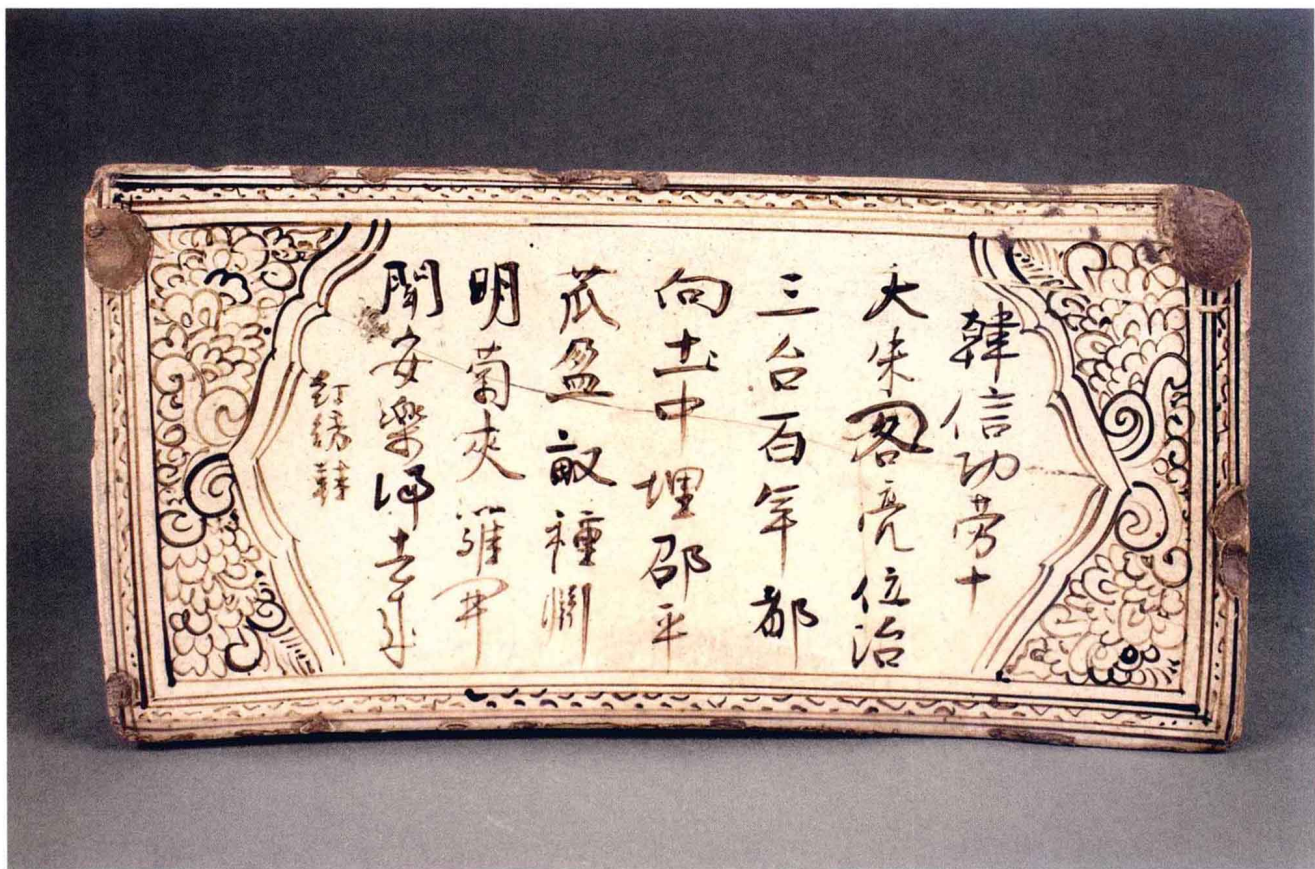 韓信功劳十
大朱阁亮位治
三台百年都
向土中埋邵平
苽盈畝種渊
明菊夾籬开
闻安樂归去来
紅綉鞋